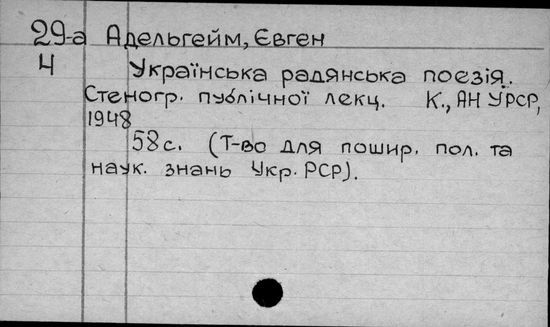 29-а Адельгейм, Євген
4 Українська радянська поезія.
Стеногр. публічної лекц. К., АН УРСР,
1948
58 с. (Т-во для пошир. пол. та
наук. знань Укр. РСР).